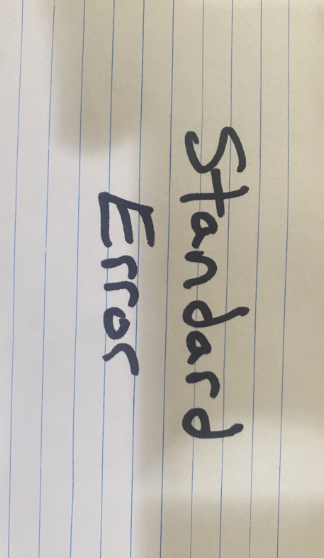 Standard
Error